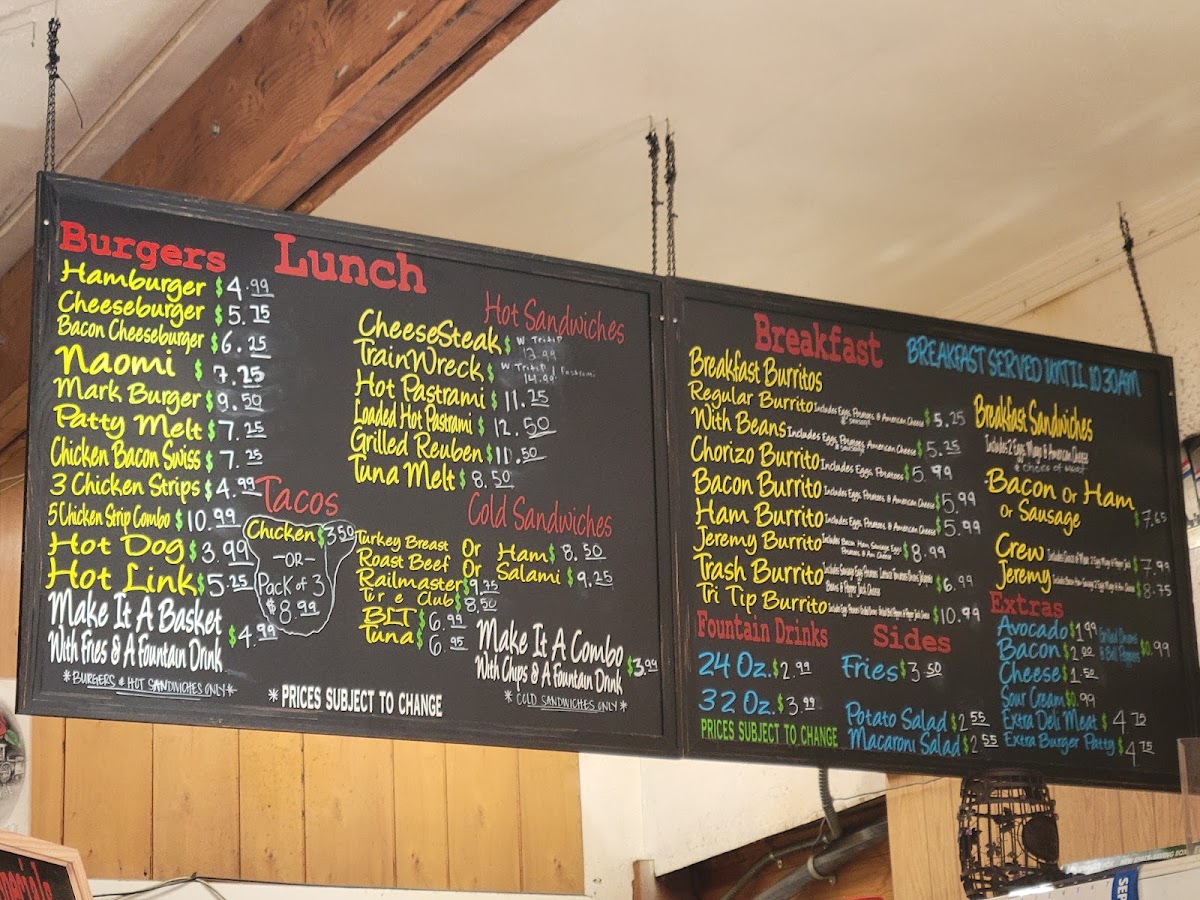 Lunch
Burgers
Hamburger $4.99
Cheeseburger $5.75
Bacon Cheeseburger $6.25
Naomi $7.25
Mark Burger $9.50
Patty Melt $7.25
Chicken Bacon Swiss $7.25
3 Chicken Strips $4.99
5 Chicken Strip Combo $10.99
Hot Dog $3.99
Hot Link $5.25
Make It A Basket
With Fries & A Fountain Drink $4.99
*BURGERS & HOT SANDWICHES ONLY*
Tacos
Chicken $3.50
-OR-
Pack of 3
$8.99
Hot Sandwiches
CheeseSteak $ W Tritip
13.99
TrainWreck $ W Tritip / Pastrami
14.99
Hot Pastrami $11.25
Loaded Hot Pastrami $12.50
Grilled Reuben $11.50
Tuna Melt $8.50
Cold Sandwiches
Turkey Breast Or Ham $8.50
Roast Beef Or Salami $9.25
Railmaster $9.75
Club $8.50
BLT $6.99
Tuna $6.95
Make It A Combo
With Chips & A Fountain Drink $3.99
*COLD SANDWICHES ONLY*
*PRICES SUBJECT TO CHANGE
Breakfast
BREAKFAST SERVED UNTIL 10 30AM
Breakfast Burritos
Regular Burrito Includes Eggs, Potatoes & American Cheese $5.25
& sausage
With Beans Includes Eggs, Potatoes, American Cheese $5.25
& Sausage
Chorizo Burrito Includes Eggs, Potatoes $5.99
Bacon Burrito Includes Eggs, Potatoes & American Cheese $5.99
Ham Burrito Includes Eggs, Potatoes & American Cheese $5.99
Jeremy Burrito Includes Bacon Ham, Sausage Eggs
Potatoes, & Am. Cheese $8.99
Trash Burrito Includes Sausage Eggs Potatoes
Beans & Pepper Jack Cheese $6.99
Tri Tip Burrito $10.99
Breakfast Sandwiches
Includes 2 Eggs Mayo & American Cheese
& choice of meat
Bacon Or Ham
Or Sausage $7.65
Crew $7.99
Jeremy $8.75
Fountain Drinks
24 Oz. $2.99
32 Oz. $3.99
PRICES SUBJECT TO CHANGE
Sides
Fries $3.50
Potato Salad $2.55
Macaroni Salad $2.55
Extras
Avocado $1.99
Bacon $2.00
Grilled Onions
& Bell Peppers $0.99
Cheese $1.50
Sour Cream $0.99
Extra Deli Meat $4.75
Extra Burger Patty $4.75
SEP